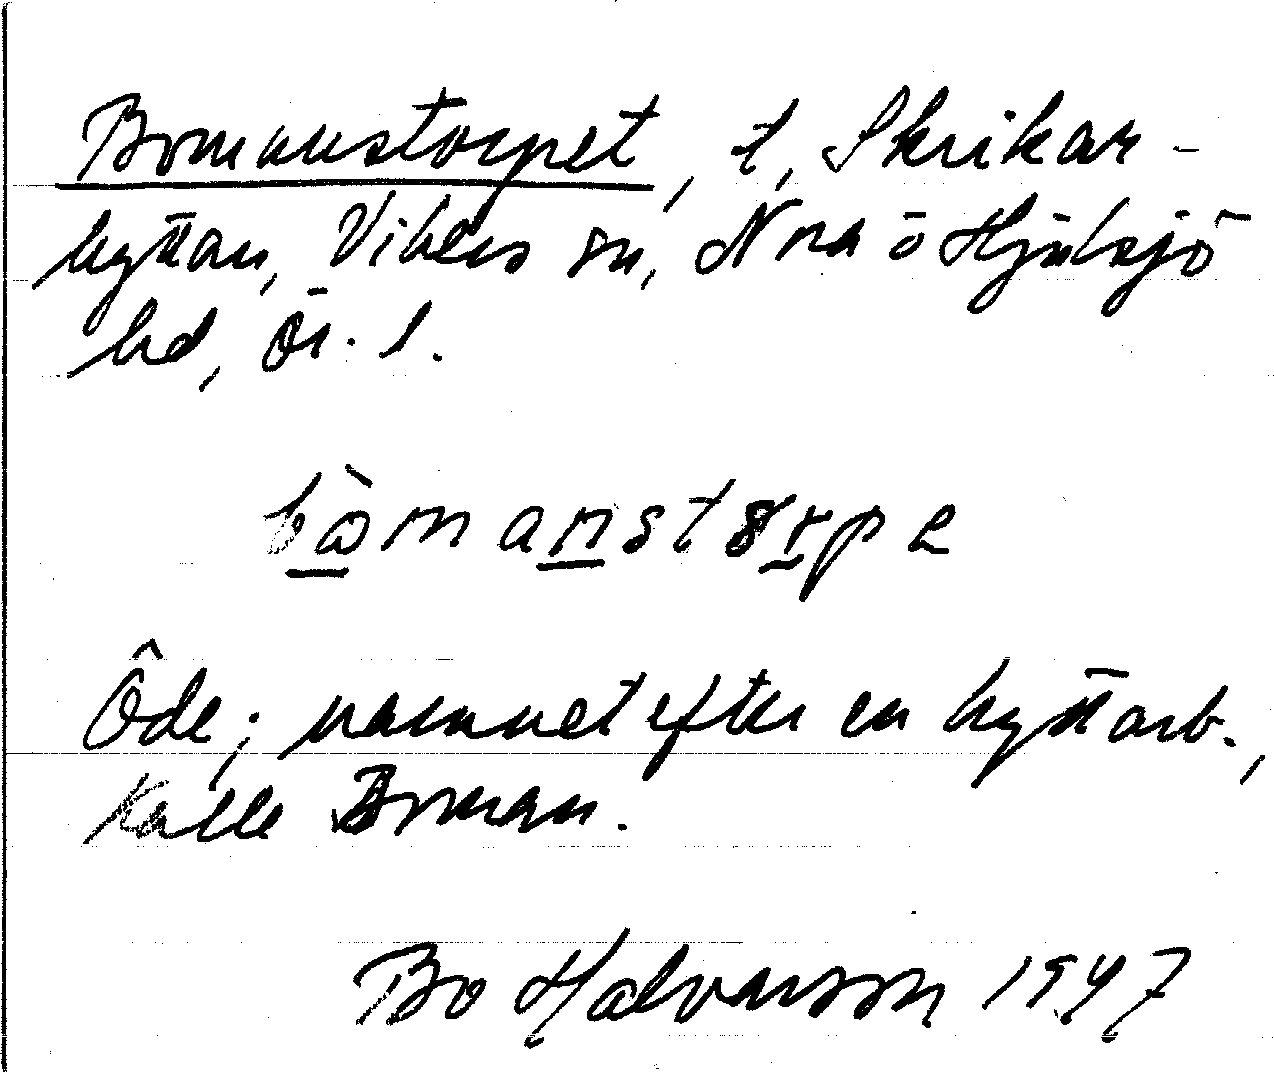 Bomanstorpet, t, Skrikar-
hyttan, Vikers sn, Nora o Hjulsjö
hd, Ör. l.
bòmanstørpe
Öde; namnet efter en hyttarb.,
Kalle Boman.
Bo Halvarsson 1947